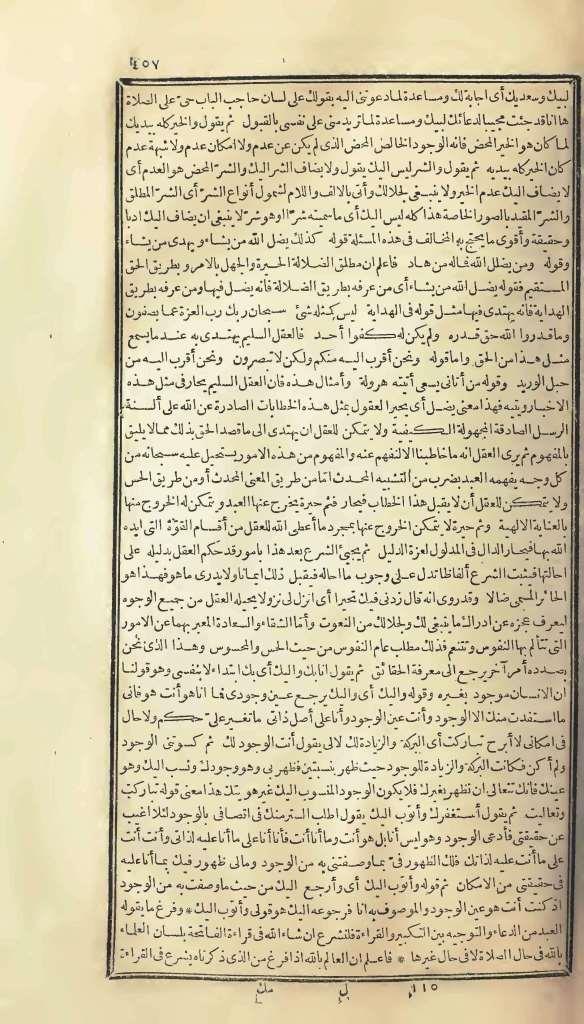 ٤٥٧
لبيك وسعديك أى اجابة لك ومساعدة لما دعوتنى اليه بقولك على لسان حاجب الباب حى على الصلاة
ها أنا قد جئت مجيبا لدعائك لبيك ومساعدة لما تريد منى على نفسى بالقبول ثم يقول والخير كله بيديك
لما كان هو الخير المحض فانه الوجود الخالص المحض الذى لم يكن عن عدم ولا امكان عدم ولا شبهة عدم
كان الخير كله بيديه ثم يقول والشر ليس اليك يقول ولا يضاف الشر اليك والشر المحض هو العدم أى
لا يضاف اليك عدم الخير ولا ينبغى لجلالك وأتى بالالف واللام لشمول أنواع الشر أى الشر المطلق
والشر المقيد بالصور الخاصة هذا كله ليس اليك أى ما سميته شرا أو هو شر لا ينبغى ان يضاف اليك أدبا
وحقيقة وأقوى ما يحتج به المخالف فى هذه المسئلة قوله كذلك يضل الله من يشاء ويهدى من يشاء
وقوله ومن يضلل الله فماله من هاد فاعلم ان مطلق الضلالة الحيرة والجهل بالامر وبطريق الحق
المستقيم فقوله يضل الله من يشاء أى من عرفه بطريق الضلالة فانه يضل فيها ومن عرفه بطريق
الهداية فانه يهتدى فيها مثل قوله فى الهداية ليس كمثله شئ سبحان ربك رب العزة عما يصفون
وما قدروا الله حق قدره ولم يكن له كفوا أحد فالعقل السليم يهتدى به عند ما يسمع
مثل هذا من الحق واما قوله ونحن أقرب اليه منكم ولكن لا تبصرون ونحن أقرب اليه من
حبل الوريد وقوله من أتانى يسعى أتيته هرولة وأمثال هذه فان العقل السليم يحار فى مثل هذه
الاخبار ويتيه فهذا معنى يضل أى يحير العقول بمثل هذه الخطابات الصادرة عن الله على ألسنة
الرسل الصادقة المجهولة الكيفية ولا يتمكن للعقل ان يهتدى الى ما قصد الحق بذلك مما لا يليق
بالمفهوم ثم يرى العقل انه ما خاطبنا الا لنفهم عنه والمفهوم من هذه الامور يستحيل عليه سبحانه من
كل وجه يفهمه العبد بضرب من التشبيه المحدث اما من طريق المعنى المحدث أو من طريق الحس
ولا يتمكن للعقل أن لا يقبل هذا الخطاب فيحار فثم حيرة يخرج عنها العبد ويتمكن له الخروج منها
بالعناية الالهية وثم حيرة لا يتمكن الخروج عنها بمجرد ما أعطى الله للعقل من أقسام القوة التى أيده
الله بها فيحار الدال فى المدلول لعزة الدليل ثم يجئ الشرع بعد هذا بامور قد حكم العقل بدليله على
احالتها فيثبت الشرع ألفاظا تدل على وجوب ما أحاله فيقبل ذلك ايمانا ولا يدرى ما هو فهذا هو
الحائر المسمى ضالا وقد روى انه قال زدنى فيك تحيرا أى انزل لى نزولا يحيله العقل من جميع الوجوه
ليعرف عجزه عن ادراك ما ينبغى لك ولجلالك من النعوت وأما الشقاء والسعادة المعبر بهما عن الامور
التى تتألم بها النفوس وتتنعم فذلك مطلب عام النفوس من حيث الحس والمحسوس وهذا الذى نحن
بصدده أمر آخر يرجع الى معرفة الحقائق ثم يقول انا بك واليك أى بك ابتداء لا بنفسى وهو قولنا
ان الانسان موجود بغيره وقوله واليك أى واليك يرجع عين وجودى فما أنا هو أنت هو فانى
ما استفدت منك الا الوجود وأنت عين الوجود وأنا على أصل ذاتى ما تغير على حكم ولا حال
فى امكانى لا أبرح تباركت أى البركة والزيادة لك لا لى يقول أنت الوجود لك ثم كسوتنى الوجود
ولم أكن فكانت البركة والزيادة للوجود حيث ظهر بنسبتين فظهر بى وهو وجودك ونسب اليك وهو
عينك فانك تتعالى ان تظهر بغيرك فلا يكون الوجود المنسوب اليك غير هويتك هذا معنى قوله تباركت
وتعاليت ثم يقول أستغفرك وأتوب اليك يقول اطلب الستر منك فى اتصافى بالوجود لئلا أغيب
عن حقيقتى فأدعى الوجود وهو ليس أنا بل هو أنت وما أنا أنت فأنا أنا على ما أنا عليه لذاتى وأنت أنت
على ما أنت عليه لذاتك فلك الظهور فى بما وصفتنى به من الوجود ومالى ظهور فيك بما أنا عليه
فى حقيقتى من الامكان ثم قوله وأتوب اليك أى وأرجع اليك من حيث ما وصفت به من الوجود
اذ كنت أنت هو عين الوجود والموصوف به انا فرجوعه اليك هو قولى وأتوب اليك * وفرغ ما يقوله
العبد من الدعاء والتوجيه بين التكبير والقراءة فلنشرع ان شاء الله فى قراءة الفاتحة بلسان العلماء
بالله فى حال الصلاة لا فى حال غيرها * فاعلم ان العالم بالله اذا فرغ من الذى ذكرناه يشرع فى القراءة
١١٥ ل مك